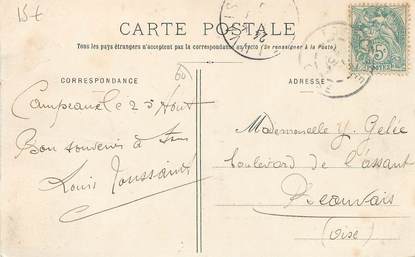 15t
CARTE POSTALE
Tous les pays étrangers n'acceptent pas la correspondance au recto (Se renseigner à la Poste)
CORRESPONDANCE
ADRESSE
60
le 25 Aout
Bon souvenir à tous
Louis Toussaint
Mademoiselle Y. Gelée
boulevard de l'assaut
Beauvais
(Oise)
5c